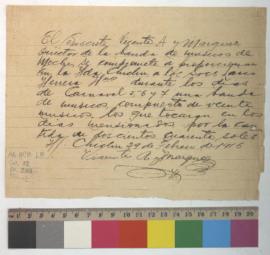 El Suscrito Vicente A y Marquez
Director de la banda de musicos de
Moche, se compromete a proporcionar
en la Hda. Chiclin a los Sres Larco
Herrera Hos durante los dias
de Carnaval 5, 6 y 7 una banda
de musicos compuesta de veinte
musicos los que tocarán en los
dias mensionados por la can
tida de doscientos cuarenta soles
Chiclin 29 de Febrero de 1916
Vicente A y Marquez